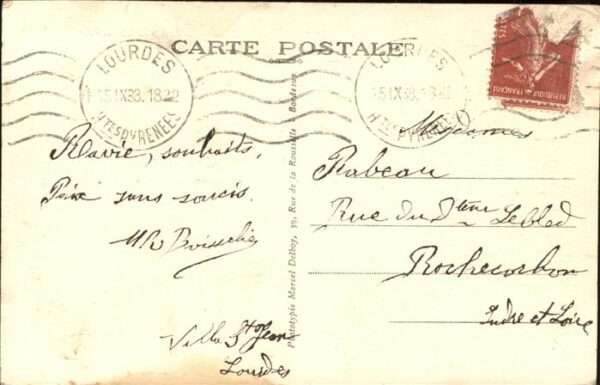 CARTE POSTALE
LOURDES
15 IX 38. 18 22
HTES PYRENEES
LOURDES
HTES PYRENEES
REPUBLIQUE FRANÇAISE
Ravie, souhaits,
Paix sans soucis.
M R Boisselie
Villa St Jean
Lourdes
Phototypie Marcel Delboy, Rue de la Rousselle - Bordeaux
Rabeau
Rue du Lebled
Rochecorbon
Indre et Loire